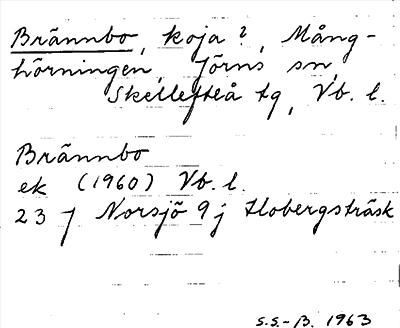 Brännbo, koja?, Mång-
hörningen, Jörns sn,
Skellefteå tg, Vb. l.
Brännbo
ek (1960) Vb. l.
23 J Norsjö 9 j Flobergsträsk
S.S.-B. 1963